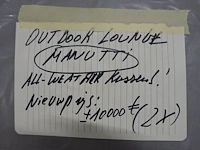 OUTDOOR LOUNGE
MANUTTI
ALL-WEATHER Kussens!
Nieuwprijs:
+10000 € (2X)